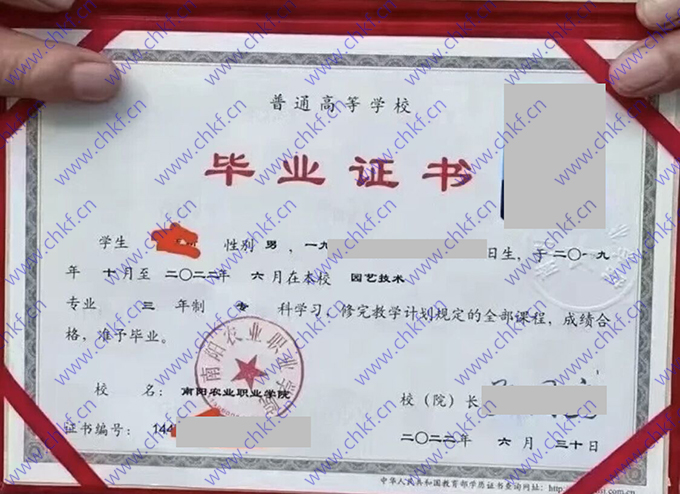 普通高等学校
毕业证书
学生 性别 男 ，一九 日生，于二〇一九
年 十月至 二〇二二年 六月在本校 园艺技术
专业 三 年制 专 科学习，修完教学计划规定的全部课程，成绩合
格，准予毕业。
南阳农业职业学院
校 名： 南阳农业职业学院
校（院）长
证书编号： 144
二〇二二年 六月 三十日
中华人民共和国教育部学历证书查询网址：
www.chkf.cn